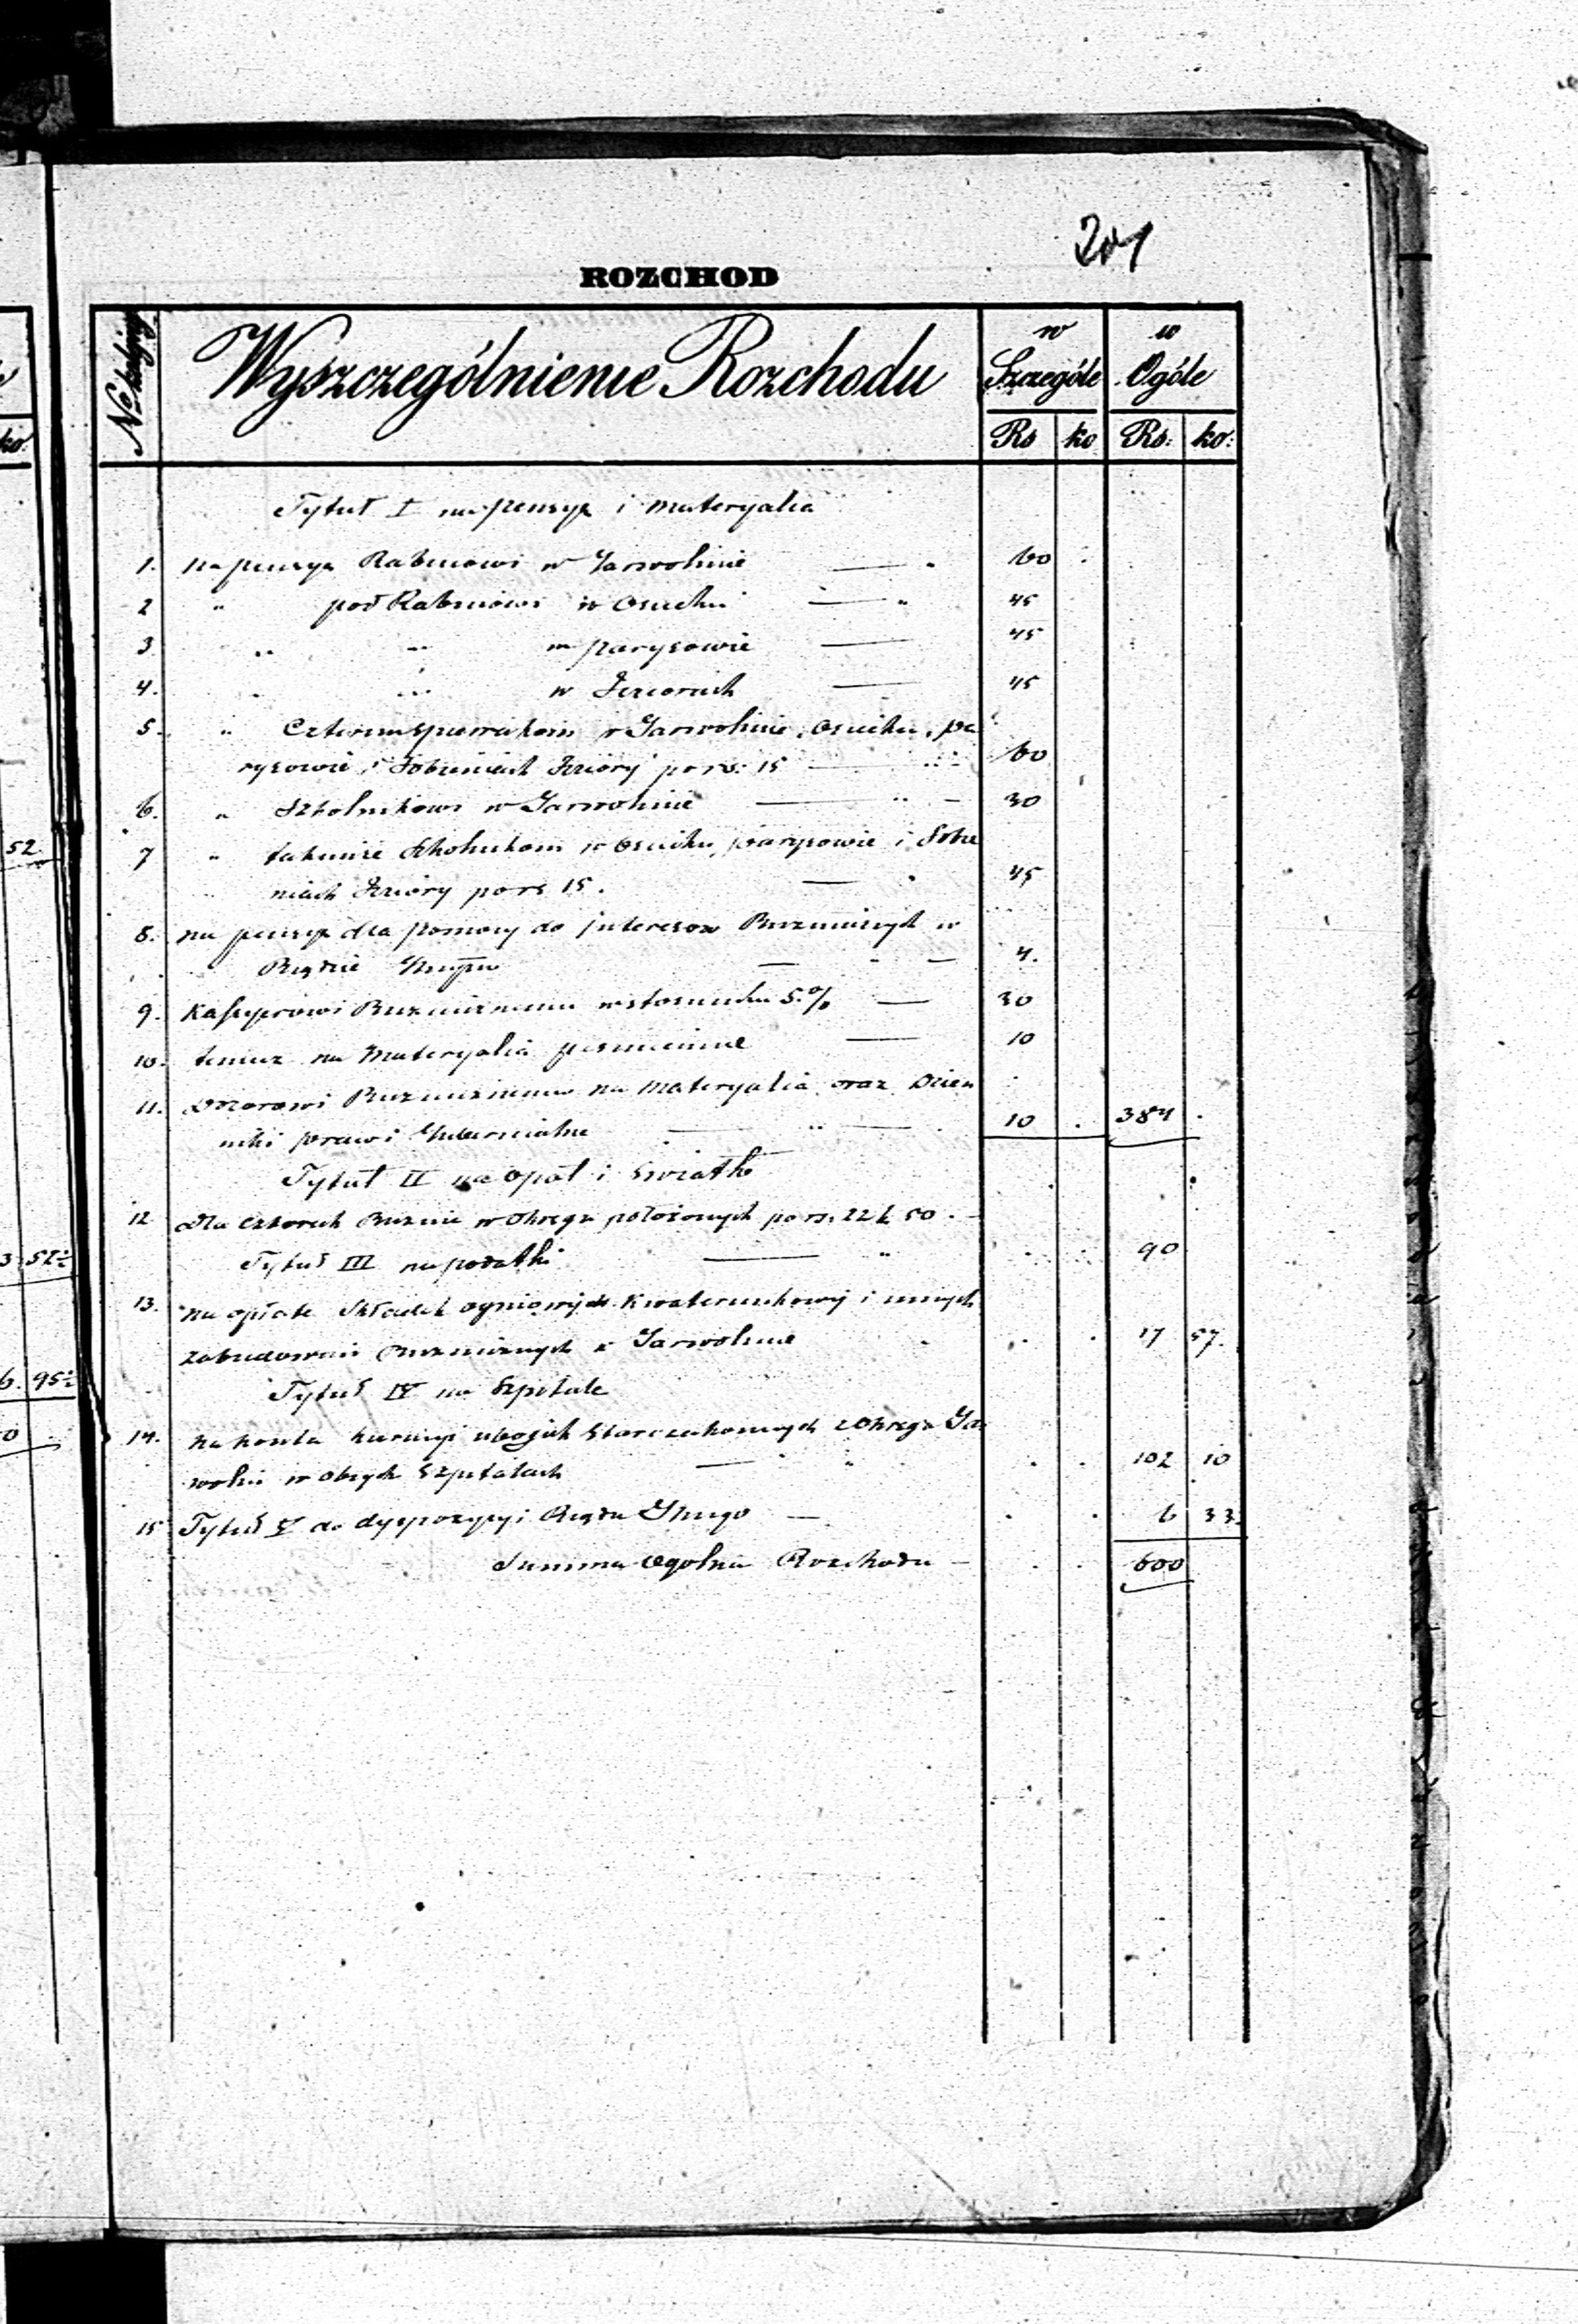 201
ROZCHOD
№ kolejny
Wyszczególnienie Rozchodu
w Szczególe
w Ogóle
Rs ko Rs: ko:
Tytuł I na pensye i Materyalia
1. na pensye Rabinowi w Garwolinie — " 60
2 " pod Rabinowi w Osiecku — " 45
3 " " w parysowie — 45
4. " " w Jeziorach — 45
5. " Czterem spiewakom w Garwolinie, Osiecku, pa
rysowie i Sobieniach Jeziory po rs: 15 — 60
6. " Szkolnikowi w Garwolinie — 30
7 " takimże Szkolnikom w Osiecku, parysowie i Sobie
niach Jeziory po rs 15. — 45
8. na pensye dla pomocy do jnteresow Bużniczych w
Rządzie — 4.
9. Kassyerowi Bużnicznemu w stosunku 5.% — 30
10. temuż na Materyalia pismienne — 10
11. Dozorowi Bużnicznemu na Materyalia oraz Dzien
niki praw i Gubernialne — 10 . 384 .
Tytuł II na Opał i Swiatło
12 Dla czterech Bużnic w Okręgu położonych po rs. 22 k 50. 90
Tytuł III na podatki —
13. na opłate Składek ogniowych Kwaterunkowej i innych
zabudowań Bużnicznych w Garwolinie 17 57.
Tytuł IV na Szpitale
14. na koszta kuracyi ubogich Starozakonnych z Okręgu Ga
wolin w obcych Szpitalach — 102 10
15 Tytuł V do dyspozycyi Rządu — 6 33.
Summa Ogolna Rozchodu — 600
ko:
52.
3 52½
6. 95½
0